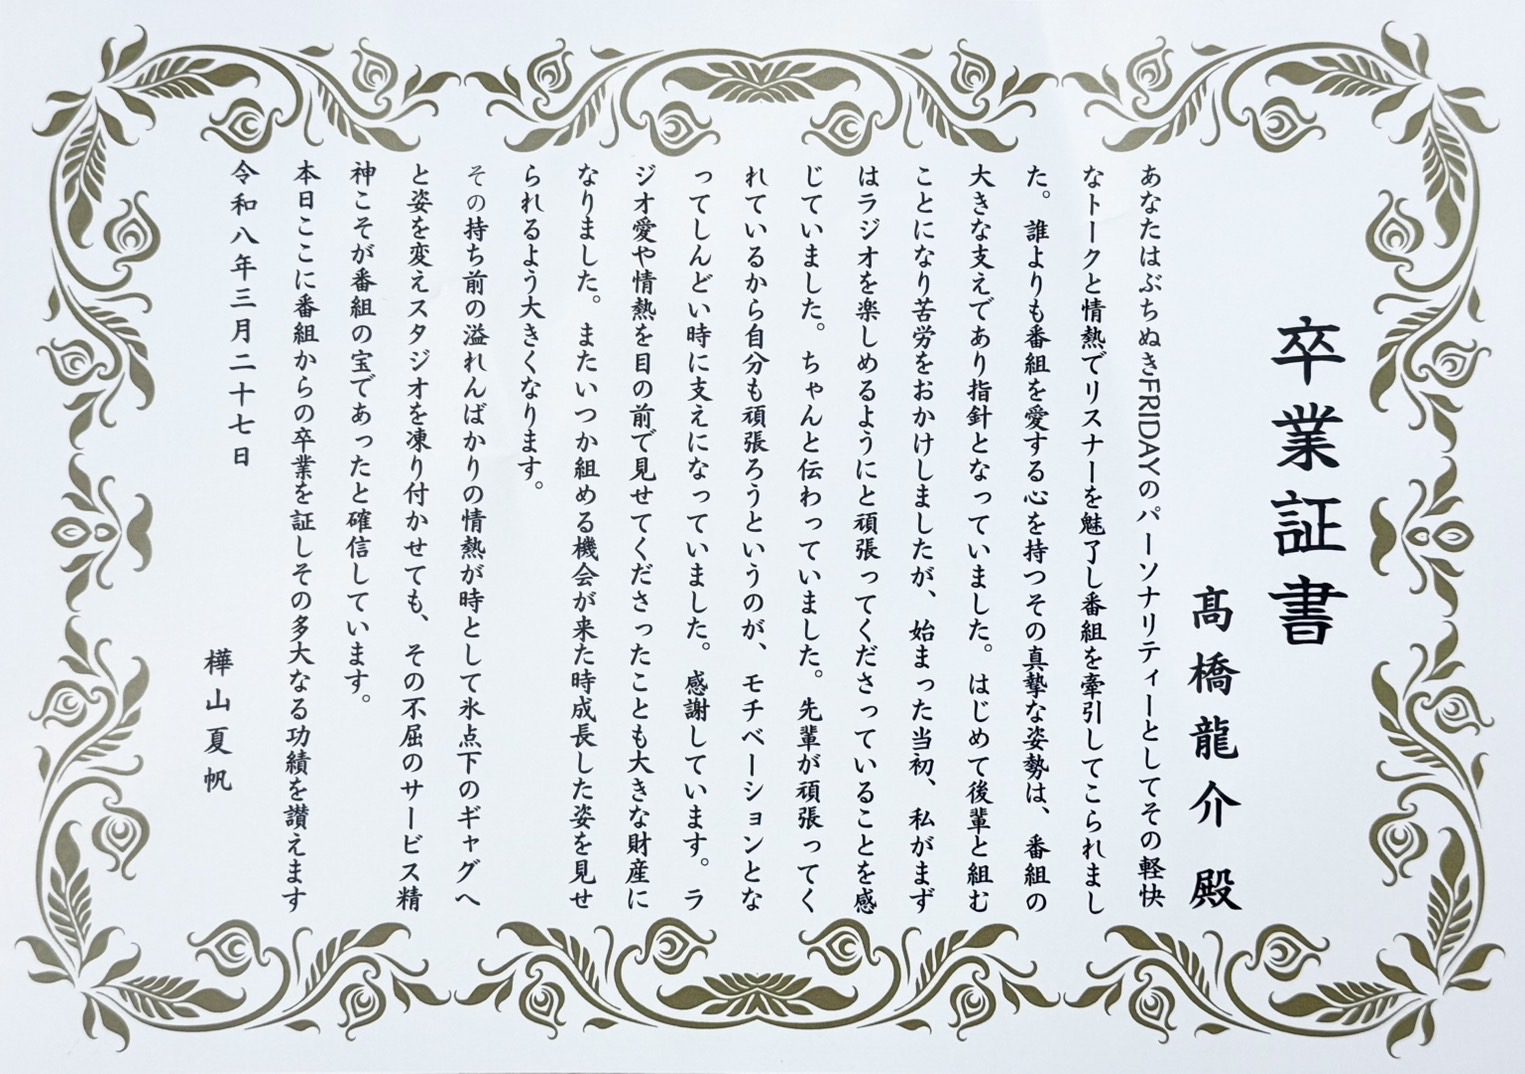 卒業証書
髙橋龍介 殿
あなたはぶちぬきFRIDAYのパーソナリティーとしてその軽快
なトークと情熱でリスナーを魅了し番組を牽引してこられまし
た。誰よりも番組を愛する心を持つその真摯な姿勢は、番組の
大きな支えであり指針となっていました。はじめて後輩と組む
ことになり苦労をおかけしましたが、始まった当初、私がまず
はラジオを楽しめるようにと頑張ってくださっていることを感
じていました。ちゃんと伝わっていました。先輩が頑張ってく
れているから自分も頑張ろうというのが、モチベーションとな
ってしんどい時に支えになっていました。感謝しています。ラ
ジオ愛や情熱を目の前で見せてくださったことも大きな財産に
なりました。またいつか組める機会が来た時成長した姿を見せ
られるよう大きくなります。
その持ち前の溢れんばかりの情熱が時として氷点下のギャグへ
と姿を変えスタジオを凍り付かせても、その不屈のサービス精
神こそが番組の宝であったと確信しています。
本日ここに番組からの卒業を証しその多大なる功績を讃えます
令和八年三月二十七日
樺山夏帆